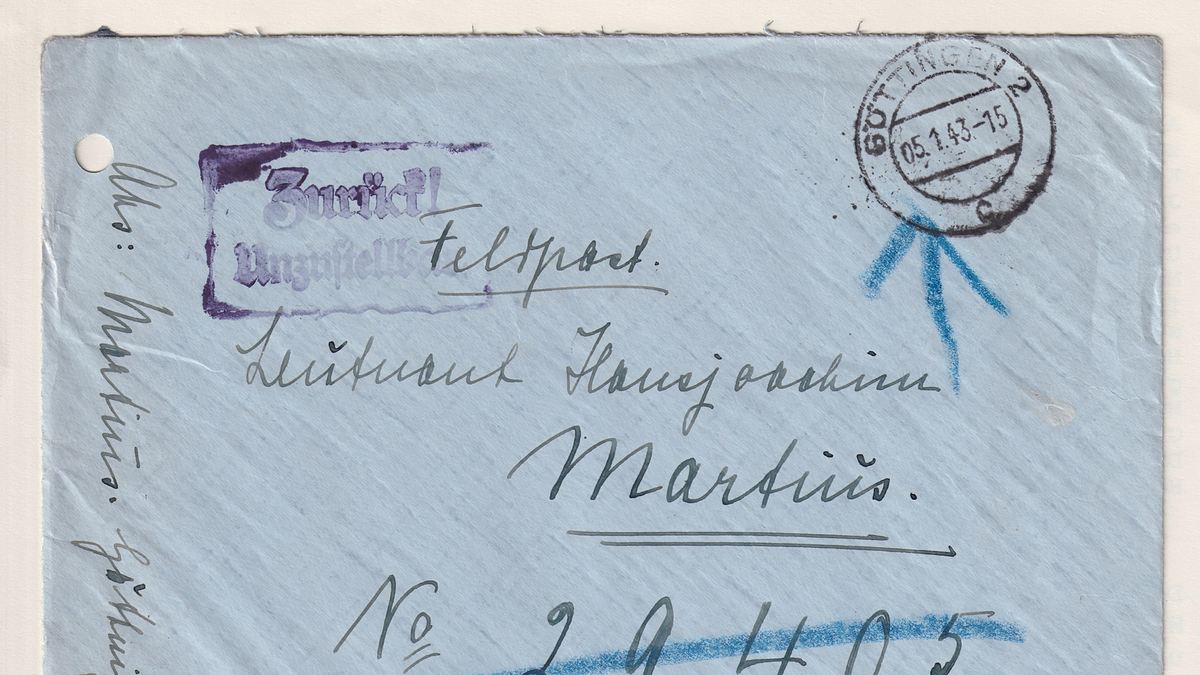 GÖTTINGEN 2
05.1.43-15
c
Zurück!
Feldpost.
Leutnant Hansjoachim
Martius.
No 29405
Abs: Martius. Götting